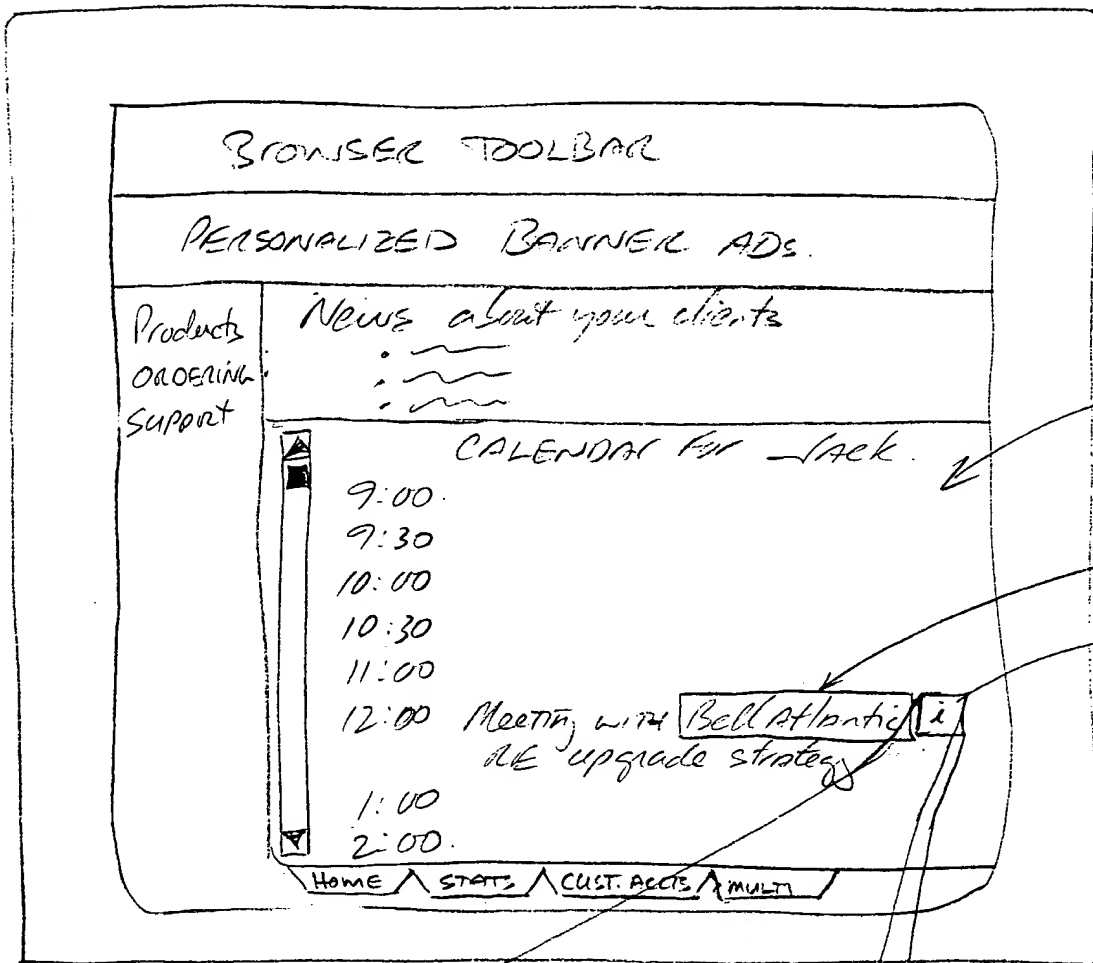 BROWSER TOOLBAR
PERSONALIZED BANNER ADs.
Products
ORDERING
SUPPORT
News about your clients
CALENDAR For Jack.
9:00
9:30
10:00
10:30
11:00
12:00 Meeting with Bell Atlantic i
RE upgrade strategy
1:00
2:00
HOME STATS CUST. ACCTS MULTI